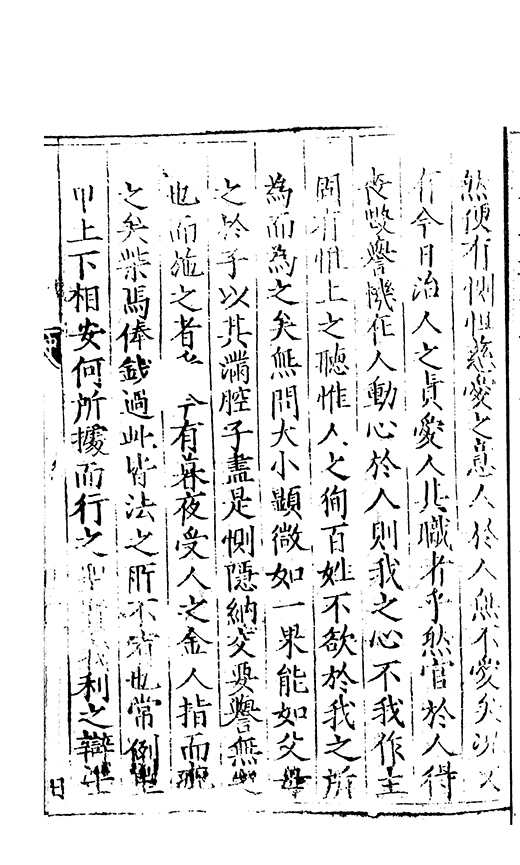 然便有惻怛慈愛之意人於人無不愛矣況又
有今日治人之責愛人其職者乎然官於人得
喪毀譽機在人動心於人則我之心不我作主
固有惟上之聽惟人之狥百姓不欲於我之所
為而為之矣無問大小顯微如一果能如父母
之於子以其滿腔子盡是惻隱納交要譽無
也而施之者七 今有暮夜受人之金人指而
之矣柴馬俸錢過此皆法之所不
也常例
上下相安何所據而行之
利之辯